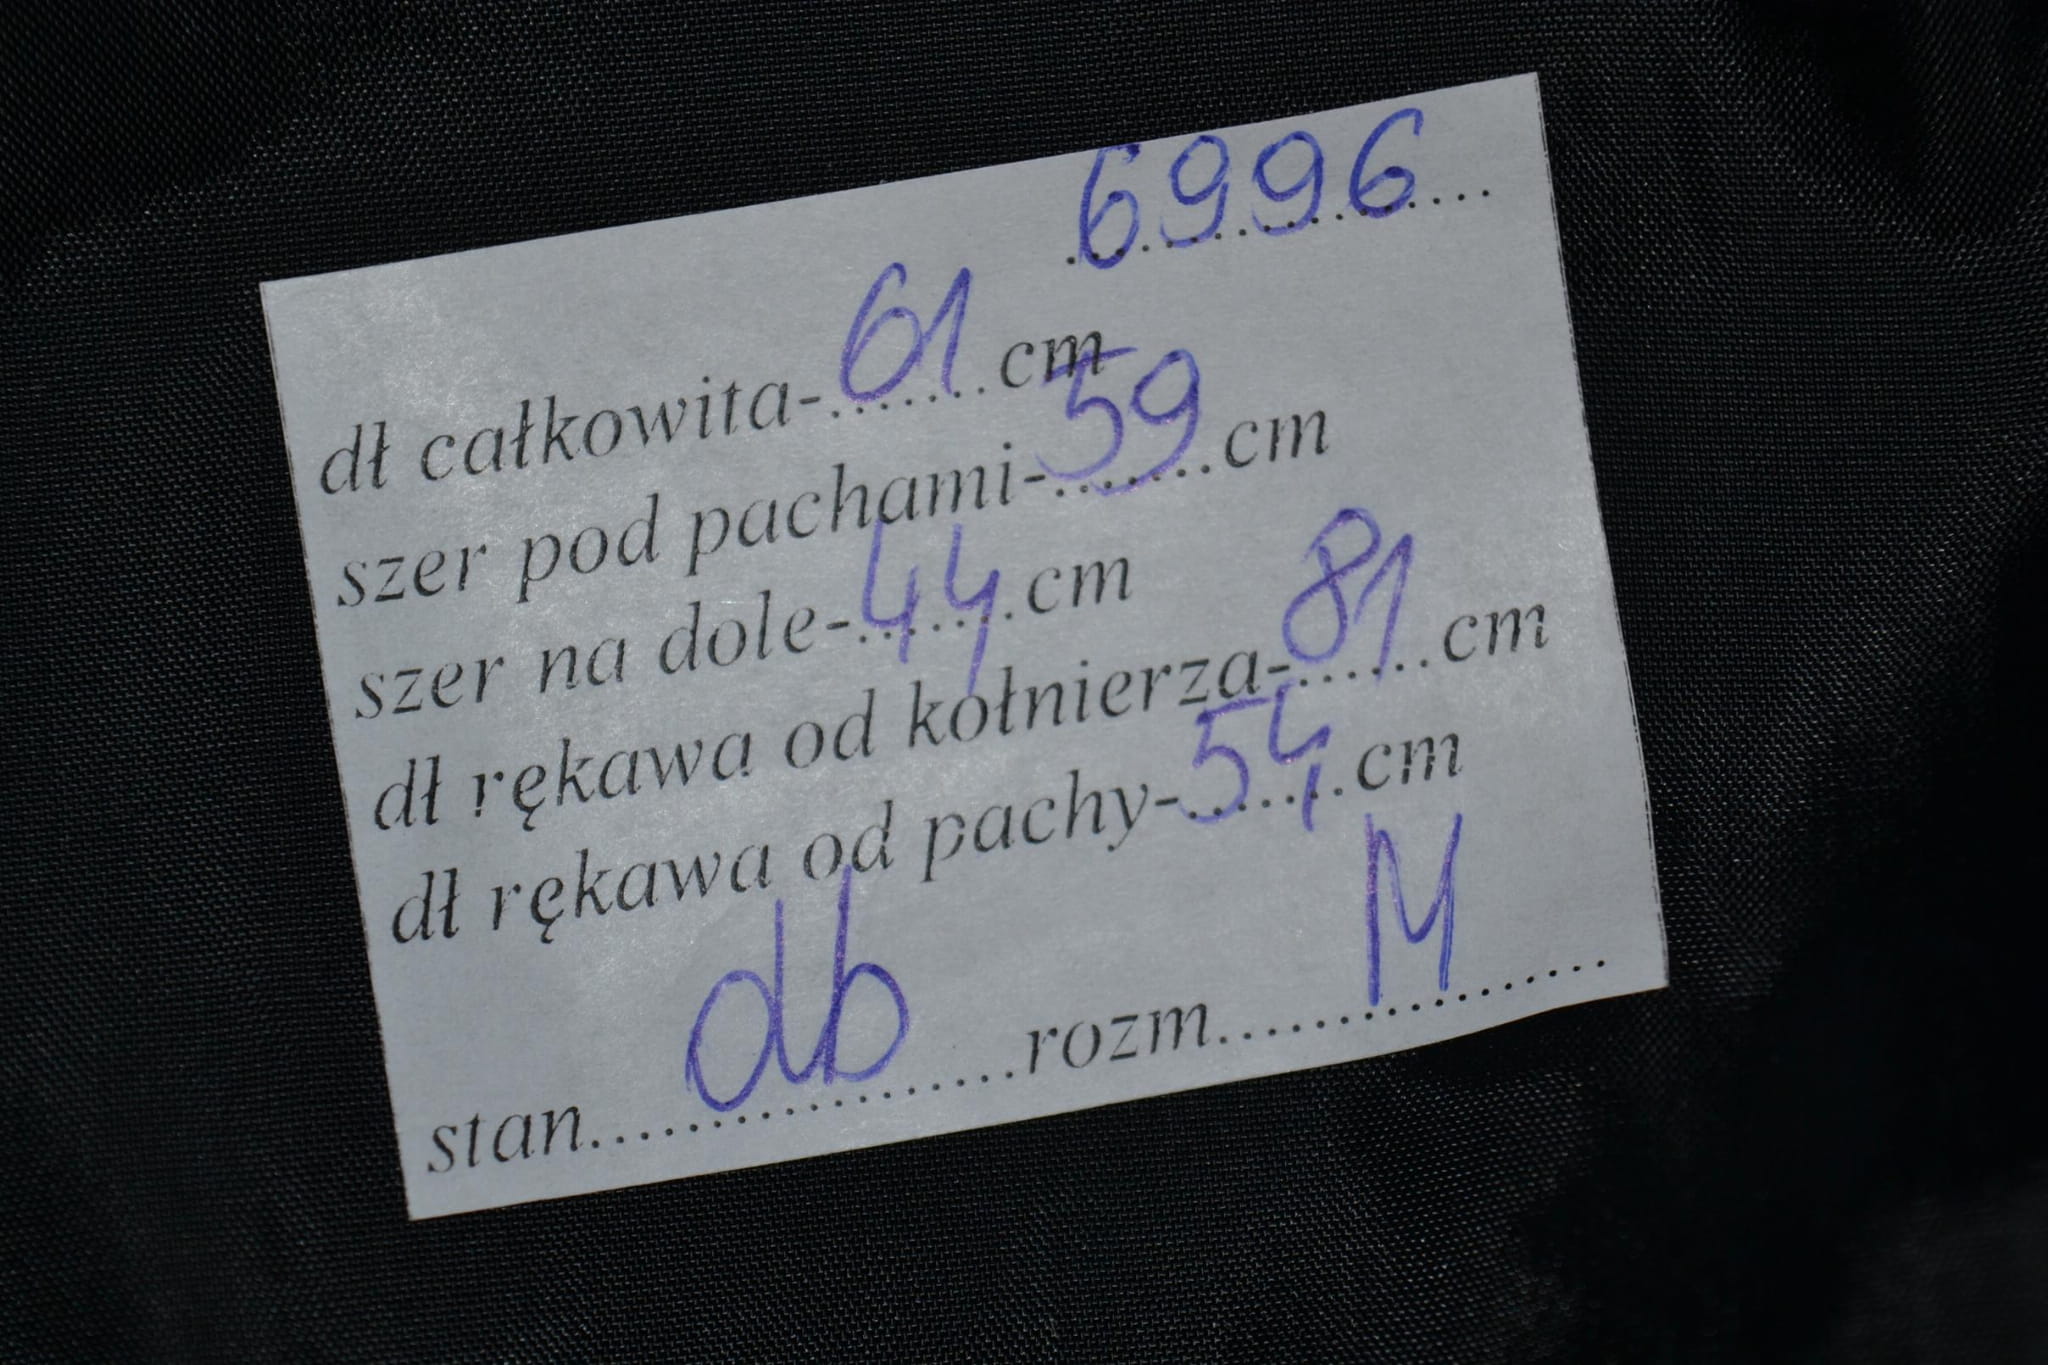 6996
dł całkowita-61.......cm
szer pod pachami-59.......cm
szer na dole-44.......cm
dł rękawa od kołnierza-81......cm
dł rękawa od pachy-54.......cm
stan....db....rozm....M....